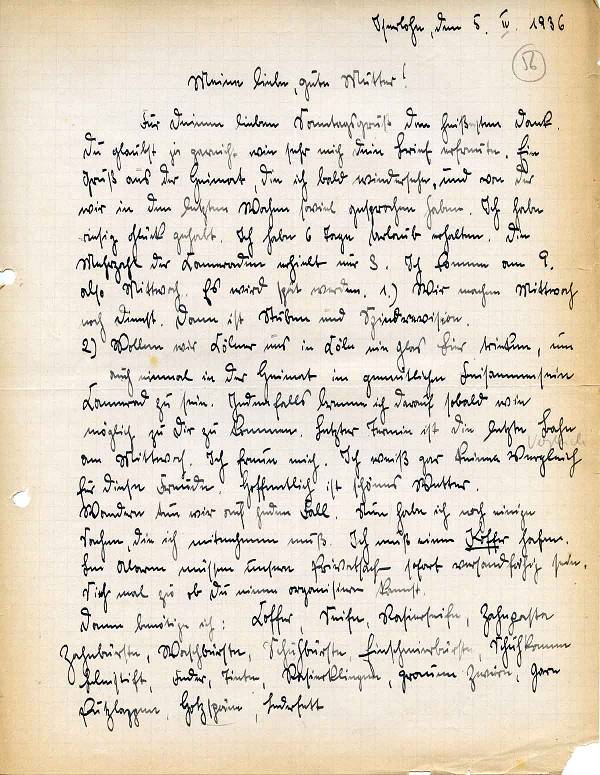 Iserlohn, den 5. IV. 1936
56
Meine liebe, gute Mutter!
Für Deinen lieben Sonntagsgruß den heißesten Dank.
Du glaubst ja gar nicht wie sehr mich dein Brief erfreute. Ein
Gruß aus der Heimat, die ich bald wiedersehe, und von der
wir in den letzten Wochen soviel gesprochen haben. Ich habe
riesig Glück gehabt. Ich habe 6 Tage Urlaub erhalten. Die
Mehrzahl der Kameraden erhielt nur 3. Ich komme am 9.
also Mittwoch. Es wird spät werden. 1.) Wir machen Mittwoch
noch Dienst. Dann ist Stuben und Spindrevision.
2) Wollen wir Kölner uns in Köln ein Glas Bier trinken, um
auch einmal in der Heimat im gemütlichen Beisammensein
Kamerad zu sein. Jedenfalls brenne ich darauf sobald wie
möglich zu Dir zu kommen. Letzter Termin ist die letzte Bahn
Vergleich
am Mittwoch. Ich freue mich. Ich weiß gar keinen Vergleich
für diese Freude. Hoffentlich ist schönes Wetter.
Wandern tun wir auf jeden Fall. Nun habe ich noch einige
Sachen, die ich mitnehmen muß. Ich muß einen Koffer haben.
Bei Alarm müssen unsere Privatsach– sofort versandfähig sein.
Sieh mal zu ob Du einen organisieren kannst.
Dann benötige ich: Koffer, Seife, Rasierseife, Zahnpasta
Zahnbürste, Waschbürste, Schuhbürste Einschmierbürste, Schuhkrem
Bleistift, Feder, Tinte, Rasierklingen, grauen Zwirn, Garn
Putzlappen, Holzspäne, Lederfett